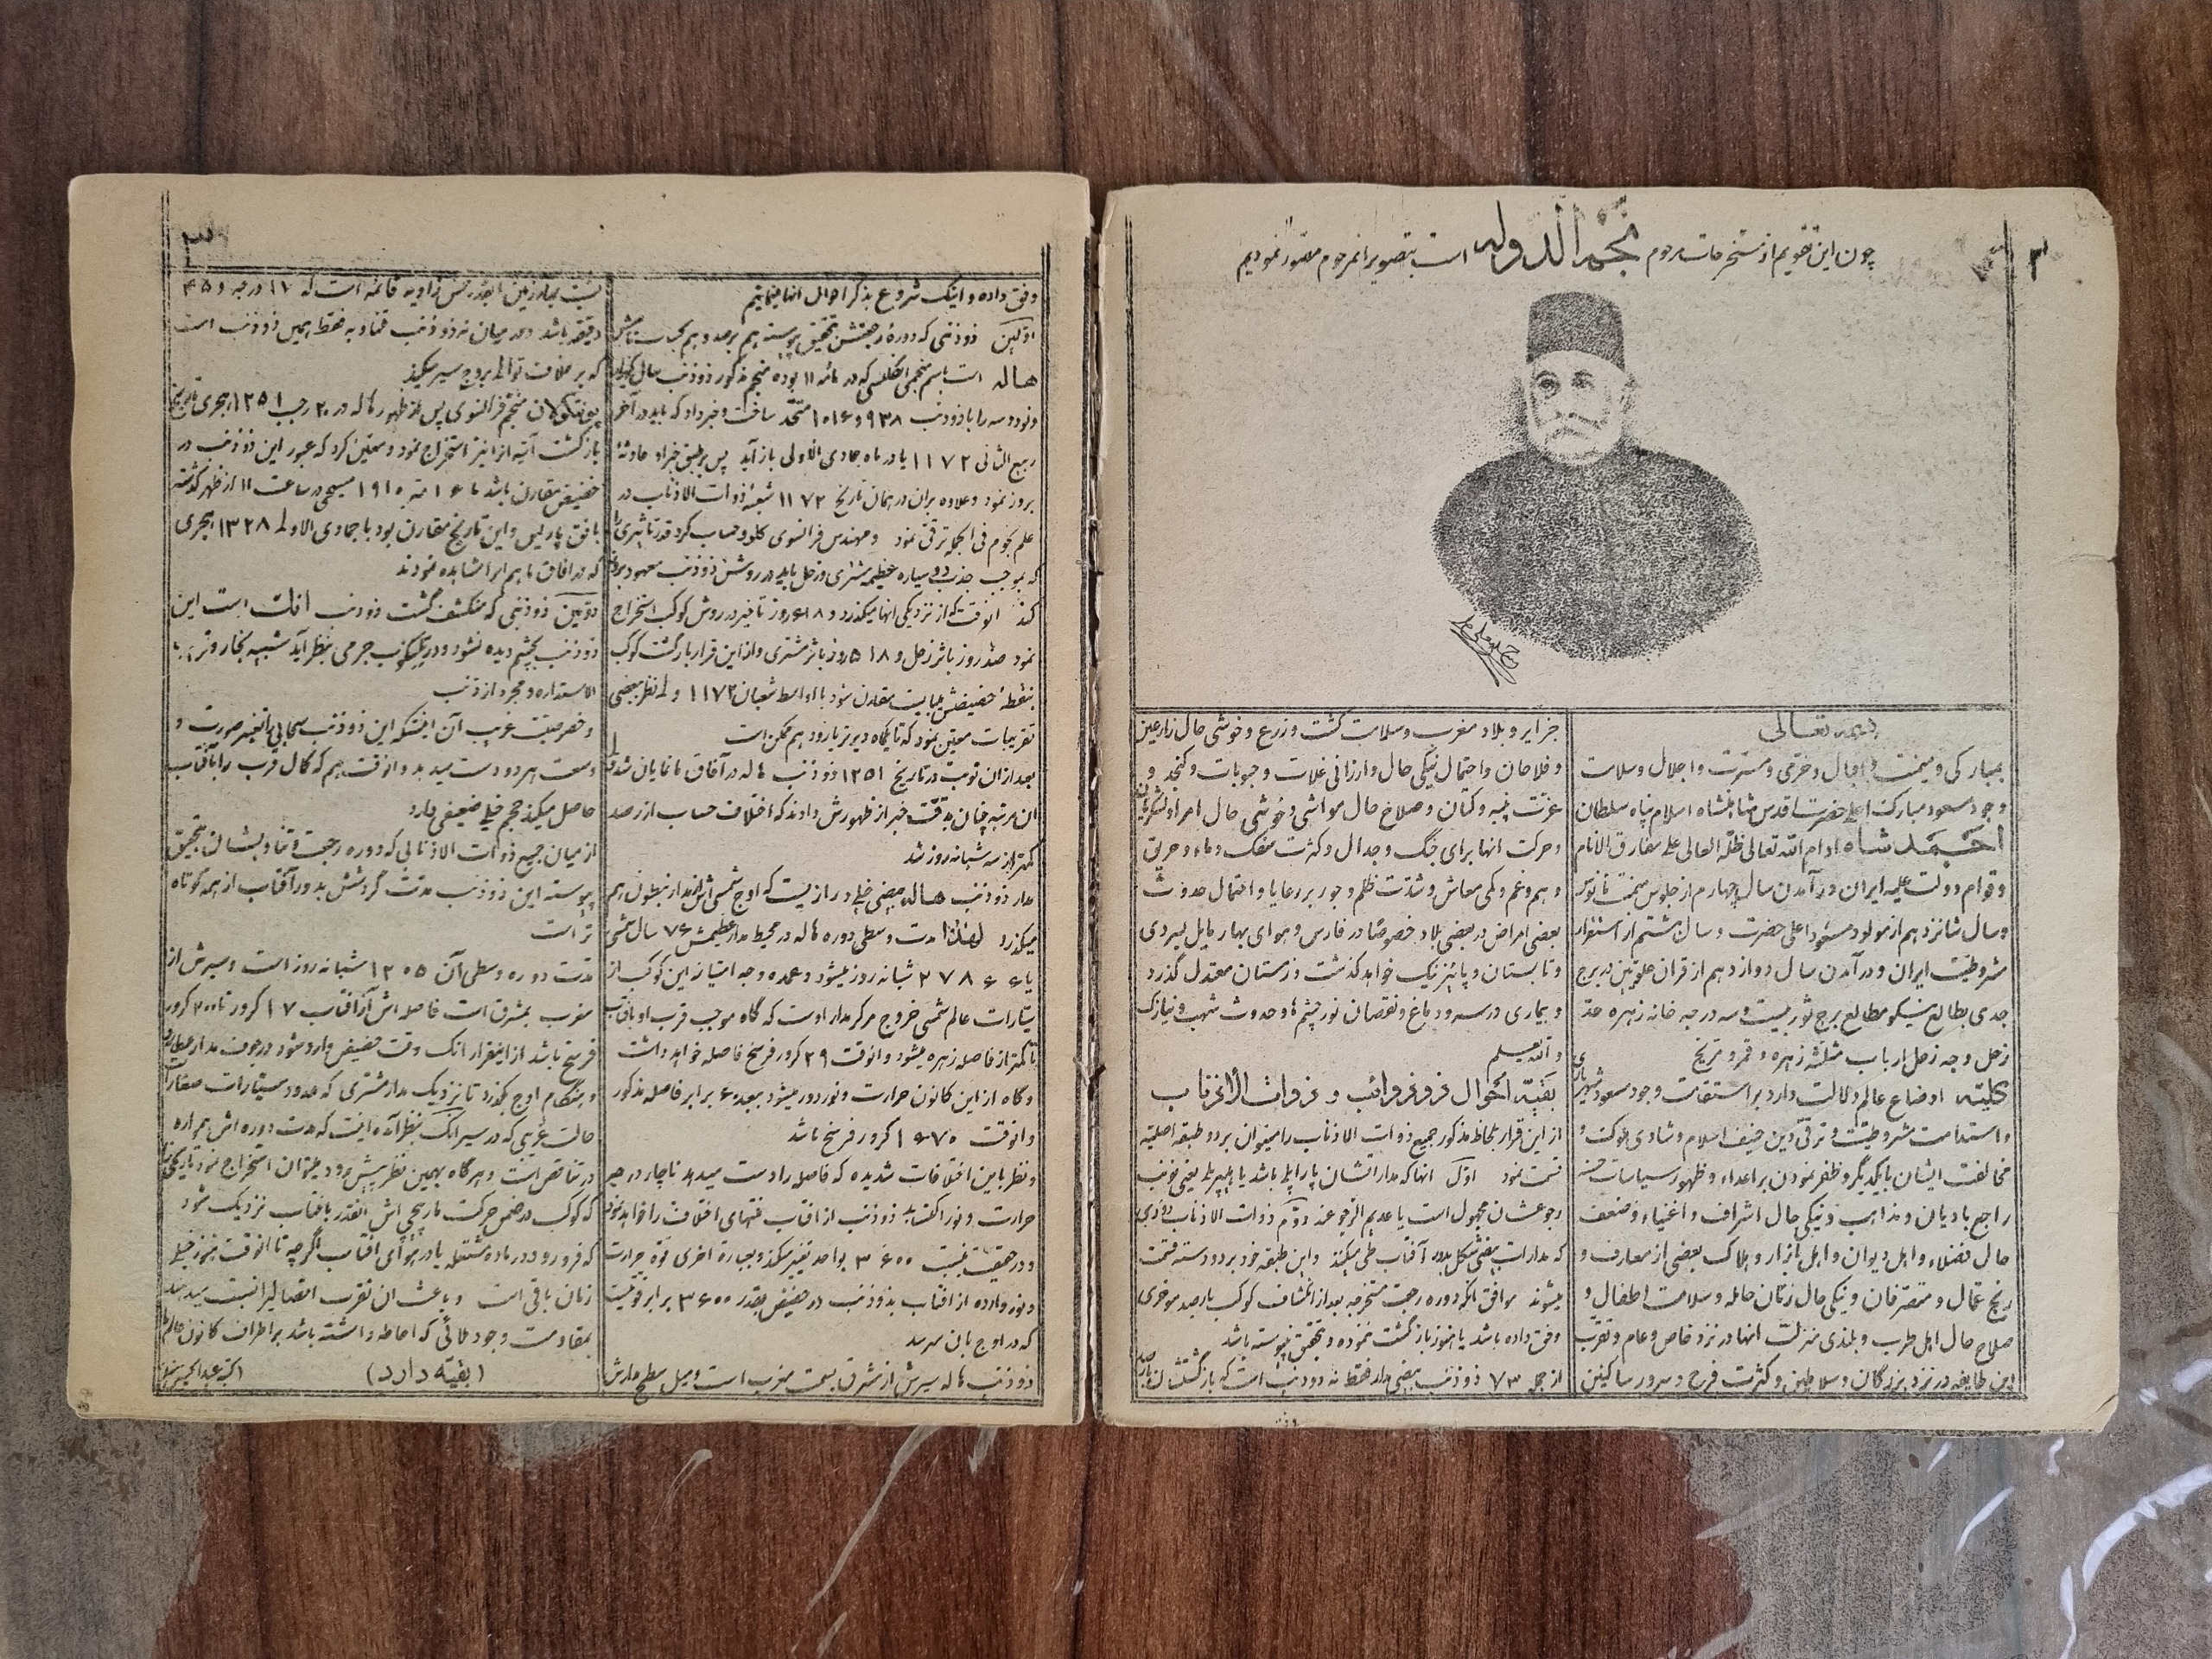 ۲
چون این تقویم از مستخرجات مرحوم نجم الدوله است بتصویر انمرحوم مصور نمودیم
بسمه تعالی
بمبارکی و میمنت و اقبال و خرمی و مسرت و اجلال و سلامت
وجود مسعود مبارک اعلیحضرت اقدس شاهنشاه اسلام پناه سلطان
احمد شاه ادام الله تعالی ظله العالی علی مفارق الانام
و قوام دولت علیه ایران در آمدن سال چهارم از جلوس میمنت مانوس
و سال شانزدهم از مولود مسعود اعلی حضرت و سال هشتم از استقرار
مشروطیت ایران و در آمدن سال دوازدهم از قران علویین در برج
جدی بطالع نیکو مطالع برج ثور بیست و سه درجه خانه زهره حد
زحل وجه زحل ارباب مثلثه زهره و قمر و مریخ
کلیه اوضاع عالم دلالت دارد بر استقامت وجود مسعود شهریاری
و استدامت مشروطیت و ترقی دین حنیف اسلام و شادی ملوک و
مخالفت ایشان با یکدیگر و ظفر نمودن بر اعداء و ظهور سیاسات حسنه
راجع بادیان و مذاهب و نیکی حال اشراف و اغنیاء و ضعف
حال فضلاء و اهل دیوان و اهل بازار و هلاک بعضی از معارف و
رنج عمال و متصرفان و نیکی حال زنان حامله و سلامت اطفال و
صلاح حال اهل طرب و بلندی منزلت انها در نزد خاص و عام و تقرب
این طایفه در نزد بزرگان و سلاطین و کثرت فرح و سرور ساکنین
جزایر و بلاد مغرب و سلامت کشت و زرع و خوشی حال زارعین
و فلاحان و احتمال نیکی حال و ارزانی غلات و حبوبات و کنجد و
عزت پنبه و کتان و صلاح حال مواشی و خوشی حال امراء و لشکریان
و حرکت انها برای جنگ و جدال و کثرت سفک دماء و حریق
و هم و غم و کمی معاش و شدت ظلم و جور بر رعایا و احتمال حدوث
بعضی امراض در بعضی بلاد خصوصا در فارس و هوای بهار مایل بسردی
و تابستان و پائیز نیک خواهد گذشت و زمستان معتدل گذرد
و بیماری در سر و دماغ و نقصان نور چشمها و حدوث شهب و نیازک
و الله یعلم
بقیه احوال ذو ذوائب و ذوات الاذناب
از این قرار بلحاظ مذکور جمیع ذوات الاذناب را میتوان بر دو طبقه اصلیه
قسمت نمود اول انها که مدار اتشان پارابلی باشد یا هیپربلی یعنی نوبت
رجوعشان مجهول است یا عدیم الرجوعند دوم ذوات الاذناب دوری
که مدارات بیضی شکل بدور آفتاب طی میکنند و این طبقه خود بر دو دسته قسمت
میشوند موافق انکه دوره رجعت مستخرجه بعد از انکشاف کوکب با رصد موخری
وفق داده باشد یا هنوز بازگشت ننموده و بتحقیق نپیوسته باشد
از جمله ۷۳ ذوذنب بیضی مدار فقط نه ذوذنب است که بازگشتشان با رصد
وفق
۳
وفق داده و اینک شروع بذکر احوال انها مینمائیم
اولین ذوذنبی که دوره رجعتش بتحقیق پیوسته هم برصد و هم بحساب نامش
هاله است باسم منجمی انگلیسی که در مائه ۱۱ بوده منجم مذکور ذوذنب سال یکهزار
و نود و سه را با ذوذنب ۹۳۸ و ۱۰۱۶ متحد ساخت و خبر داد که باید در آخر
ربیع الثانی ۱۱۷۲ یا در ماه جمادی الاولی باز آید پس بر طبق خبر او حادثه
بروز نمود و علاوه بران در همان تاریخ ۱۱۷۲ شعبه ذوات الاذناب در
علم نجوم فی الجمله ترقی نمود و مهندس فرانسوی کلرو حساب کرد قدر تاثیری را
که بموجب جذب دو سیاره عظیمه مشتری و زحل باید در روش ذوذنب معهود بروز
کند انوقت که از نزدیکی انها میگذرد و ۶۱۸ روز تاخیر در روش کوکب استخراج
نمود صد روز باثر زحل و ۵۱۸ روز باثر مشتری و از این قرار بازگشت کوکب
بنقطه حضیضش میبایست مقارن شود با اواسط شعبان ۱۱۷۲ ولی نظر ببعضی
تقریبات معین نمود که تا یکماه دیرتر یا زودهم ممکن است
بعد از ان نوبت در تاریخ ۱۲۵۱ ذوذنب هاله در آفاق ما نمایان شد ولی
ان مرتبه چنان بدقت خبر از ظهورش دادند که اختلاف حساب از رصد
کمتر از سه شبانه روز شد
مدار ذوذنب هاله بیضی خیلی درازیست که اوج شمسی اش از مدار نپطون هم
میگذرد لهذا مدت وسطی دوره هاله در محیط مدار عظیمش ۷۶ سال شمسی
یا ۲۷۸۶۶ شبانه روز میشود و عمده وجه امتیاز این کوکب از
سیارات عالم شمسی خروج مرکز مدار اوست که گاه موجب قرب او بافتاب
تا کمتر از فاصله زهره میشود و انوقت ۲۹ کرور فرسخ فاصله خواهد داشت
و گاه از این کانون حرارت و نور دور میشود ببعد ۶۰ برابر فاصله مذکور
و انوقت ۱۶۷۰ کرور فرسخ باشد
و نظر باین اختلافات شدیده که فاصله را دست میدهد ناچار در حین
حرارت و نور اکتسابی ذوذنب از افتاب منتهای اختلاف را خواهد نمود
و در حقیقت بنسبت ۳۶۰۰ بواحد تغییر میکند و بعبارة اخری قوه حرارت
و نور وارده از افتاب بذوذنب در حضیض بقدر ۳۶۰۰ برابر قوتیست
که در اوج بان میرسد
ذوذنب هاله سیرش از مشرق بسمت مغرب است و میل سطح مدارش
نسبت بمدار زمین بقدر خمس زاویه قائمه است که ۱۷ درجه و ۴۵
دقیقه باشد و در میان نه ذوذنب متناوبه فقط همین ذوذنب است
که بر خلاف توالی بروج سیر میکند
پونتکولان منجم فرانسوی پس از ظهور هاله در ۲۰ رجب ۱۲۵۱ هجری تاریخ
بازگشت آتیه انرا نیز استخراج نمود و معین کرد که عبور این ذوذنب در
حضیض مقارن باشد با ۱۶ مه ۱۹۱۰ مسیحی در ساعت ۱۱ از ظهر گذشته
بافق پاریس و این تاریخ مقارن بود با جمادی الاولی ۱۳۲۸ هجری
که در افاق ما هم انرا مشاهده نمودند
دومین ذوذنبی که منکشف گشت ذوذنب انک است این
ذوذنب بچشم دیده نشود و در تلسکوپ جرمی بنظر آید شبیه ببخار و قریب
الاستداره و مجرد از ذنب
و خصوصیت غریب آن اینستکه این ذوذنب سحابی را تغییر صورت و
وسعت هر دو دست میدهد و انوقت هم که کمال قرب را بآفتاب
حاصل میکند حجم خیلی ضعیفی دارد
از میان جمیع ذوات الاذنابی که دوره رجعت و تناوبشان بتحقیق
پیوسته این ذوذنب مدت گردشش بدور آفتاب از همه کوتاه
تر است
مدت دوره وسطی آن ۱۲۰۵ شبانه روز است و سیرش از
مغرب بمشرق است فاصله اش از آفتاب ۱۷ کرور تا ۲۰۰ کرور
فرسخ باشد از اینقرار انک وقت حضیض وارد شود در جوف مدار عطارد
و هنگام اوج بگذرد تا نزدیک مدار مشتری که حدود سیارات صغار است
حالت غریبی که در سیر انک بنظر آمده اینست که مدت دوره اش همواره
در تناقص است و هر گاه بهمین نظر پیش رود میتوان استخراج نمود تاریخی را
که کوکب در ضمن حرکت مارپیچی اش انقدر بافتاب نزدیک شود
که فرو رود در ماده مشتعله یا در هوای افتاب اگر چه تا انوقت هنوز خیلی
زمان باقی است و باعث ان تقرب اتصالی را نسبت میدهند
بمقاومت وجود مائی که احاطه داشته باشد بر اطراف کانون عالم
(بقیه دارد)